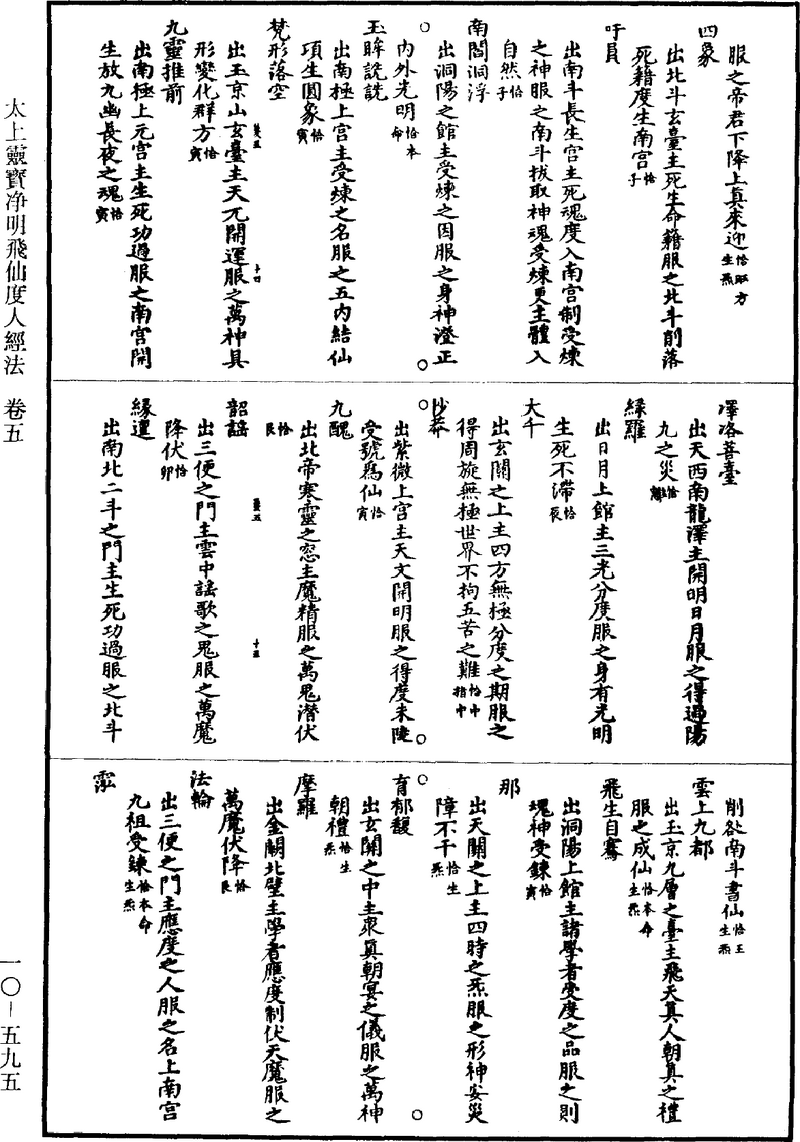 服之帝君下降上真來迎恰取方生炁
四象
出北斗玄臺主死生命籍服之北斗削落
死籍度生南宮恰子
吁員
出南斗長生宮主死魂度入南宮制受煉
之神服之南斗拔取神魂受煉更主體入
自然恰子
南閻洞浮
出洞陽之館主受煉之因服之身神澄正
内外光明恰本命
玉眸詵詵
出南極上宮主受煉之名服之五内結仙
項生圓象恰寅
梵形落空
出玉京山玄臺主天元開運服之萬神具
形變化群方恰寅
九靈推前
出南極上元宮主生死功過服之南宮開
生放九幽長夜之魂恰寅
澤洛菩臺
出天西南龍澤主開明日月服之得過陽
九之災恰
緣羅
出日月上館主三光分度服之身有光明
生死不滯恰辰
大千
出玄關之上主四方無極分度之期服之
得周旋無極世界不拘五苦之難恰中指中
眇莽
出紫微上宮主天文開明服之得度朱陵
受號爲仙恰寅
九醜
出北帝寒靈之窓主魔精服之萬鬼潛伏
恰艮
韶謡
出三便之門主雲中謡歌之鬼服之萬魔
降伏恰卯
緣邅
出南北二斗之門主生死功過服之北斗
削欲南斗書仙恰王生炁
雲上九都
出玉京九層之臺主飛天真人朝真之禮
服之成仙恰本命生炁
飛生自騫
出洞陽上館主諸學者受度之品服之則
塊神受鍊恰寅
那
出天關之上主四時之炁服之形神安災
障不干恰生炁
育郁馥
出玄關之中主衆真朝宴之儀服之萬神
朝禮恰生炁
摩羅
出金闕北壁主學者應度制伏天魔服之
萬魔伏降恰艮
法輪
出三便之門主應度之人服之名上南宮
九祖受鍊恰本命生炁
霐
太上靈寶净明飛仙度人經法　卷五
一〇-五九五